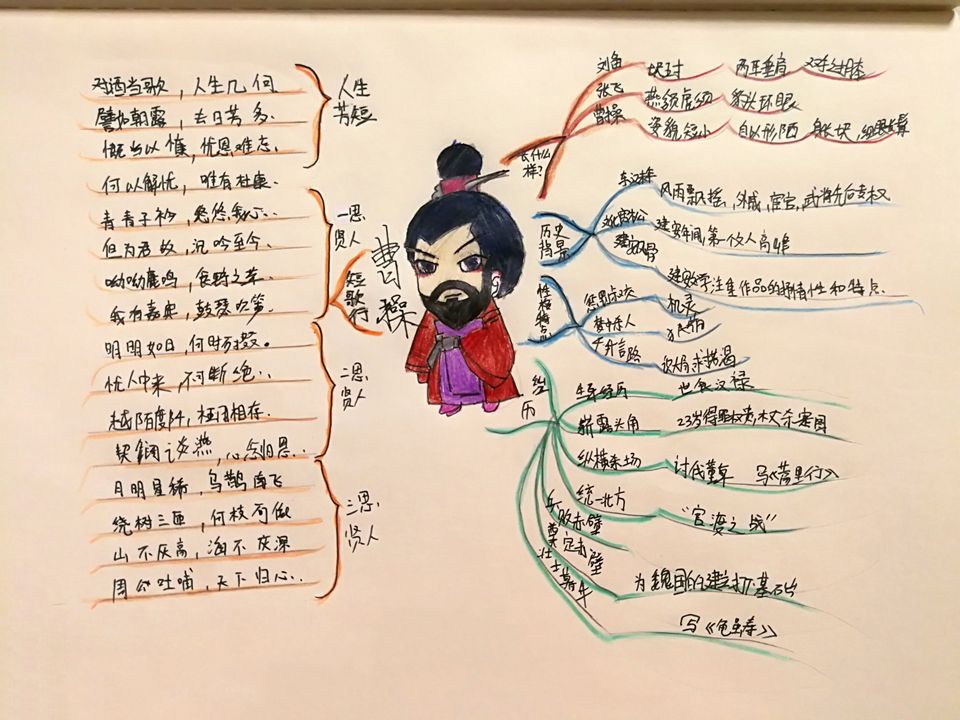 对酒当歌，人生几何
譬如朝露，去日苦多.
慨当以慷，忧思难忘.
何以解忧，唯有杜康.
青青子衿，悠悠我心.
但为君故，沉吟至今.
呦呦鹿鸣，食野之苹
我有嘉宾，鼓瑟吹笙.
明明如日，何时可掇。
忧从中来，不可断绝.
越陌度阡，枉用相存.
契阔谈燕，心念旧恩.
月明星稀，乌鹊南飞
绕树三匝，何枝可依
山不厌高，海不厌深
周公吐哺，天下归心.
人生
苦短
一思
贤人
二思
贤人
三思
贤人
短歌行
曹操
长什么样?
刘备
两耳垂肩
双手过膝
张飞
燕颔虎须
豹头环眼
曹操
姿貌短小
自以形陋
历史
背景
东汉末年
风雨飘摇，外戚，宦官，武将先后专权
建安年间，第一个文人高潮
建安风骨
建安文学注重作品的抒情性和特点.
性格特点
梦中杀人
机灵
广开言路
经历
生平经历
世食汉禄
崭露头角
纵横杀场
讨伐董卓
写《蒿里行》
统一北方
“官渡之战”
兵败赤壁
奠定
为魏国的建立打下基础
壮士暮年
写《龟虽寿》